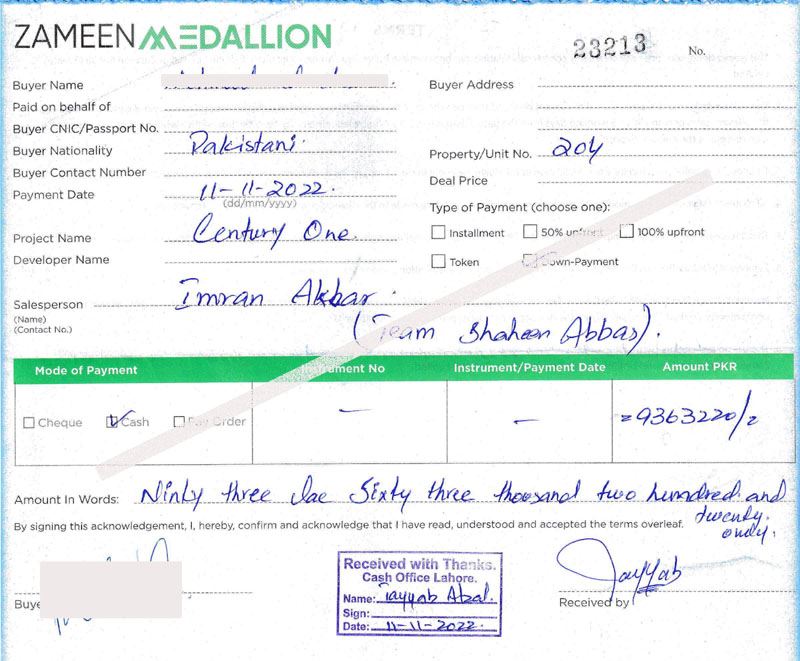 ZAMEEN MEDALLION
23213 No.
Buyer Name
Buyer Address
Paid on behalf of
Buyer CNIC/Passport No.
Buyer Nationality Pakistani
Property/Unit No. 204
Buyer Contact Number
Deal Price
Payment Date 11-11-2022.
(dd/mm/yyyy)
Type of Payment (choose one):
Installment 50% upfront 100% upfront
Project Name Century One
Developer Name
Token Down-Payment
Salesperson Imran Akbar.
(Name)
(Contact No.)
(Team Shaheen Abbas).
Mode of Payment Instrument No Instrument/Payment Date Amount PKR
Cheque Cash Pay Order — — =9363220/=
Amount In Words: Ninty three lac Sixty three thousand two hundred and
twenty
only.
By signing this acknowledgement, I, hereby, confirm and acknowledge that I have read, understood and accepted the terms overleaf.
Received with Thanks.
Cash Office Lahore.
Name: Tayyab Afzal.
Sign:
Date: 11-11-2022.
Tayyab
Received by